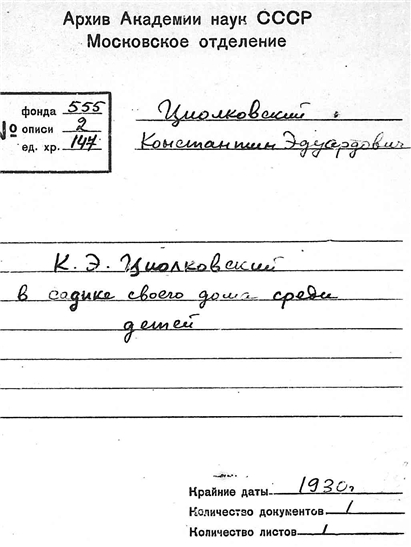 Архив Академии наук СССР
Московское отделение
№
фонда 555
описи 2
ед. хр. 147
Циолковский
Константин Эдуардович
К. Э. Циолковский
в садике своего дома среди
детей
Крайние даты 1930г
Количество документов 1
Количество листов 1